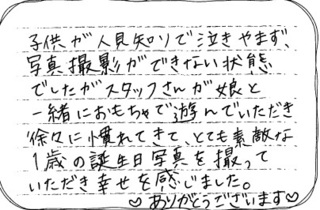 子供が人見知りで泣きやまず、
写真撮影ができない状態
でしたがスタッフさんが娘と
一緒におもちゃで遊んでいただき
徐々に慣れてきて、とても素敵な
1歳の誕生日写真を撮って
いただき幸せを感じました。
♡ありがとうございます♡